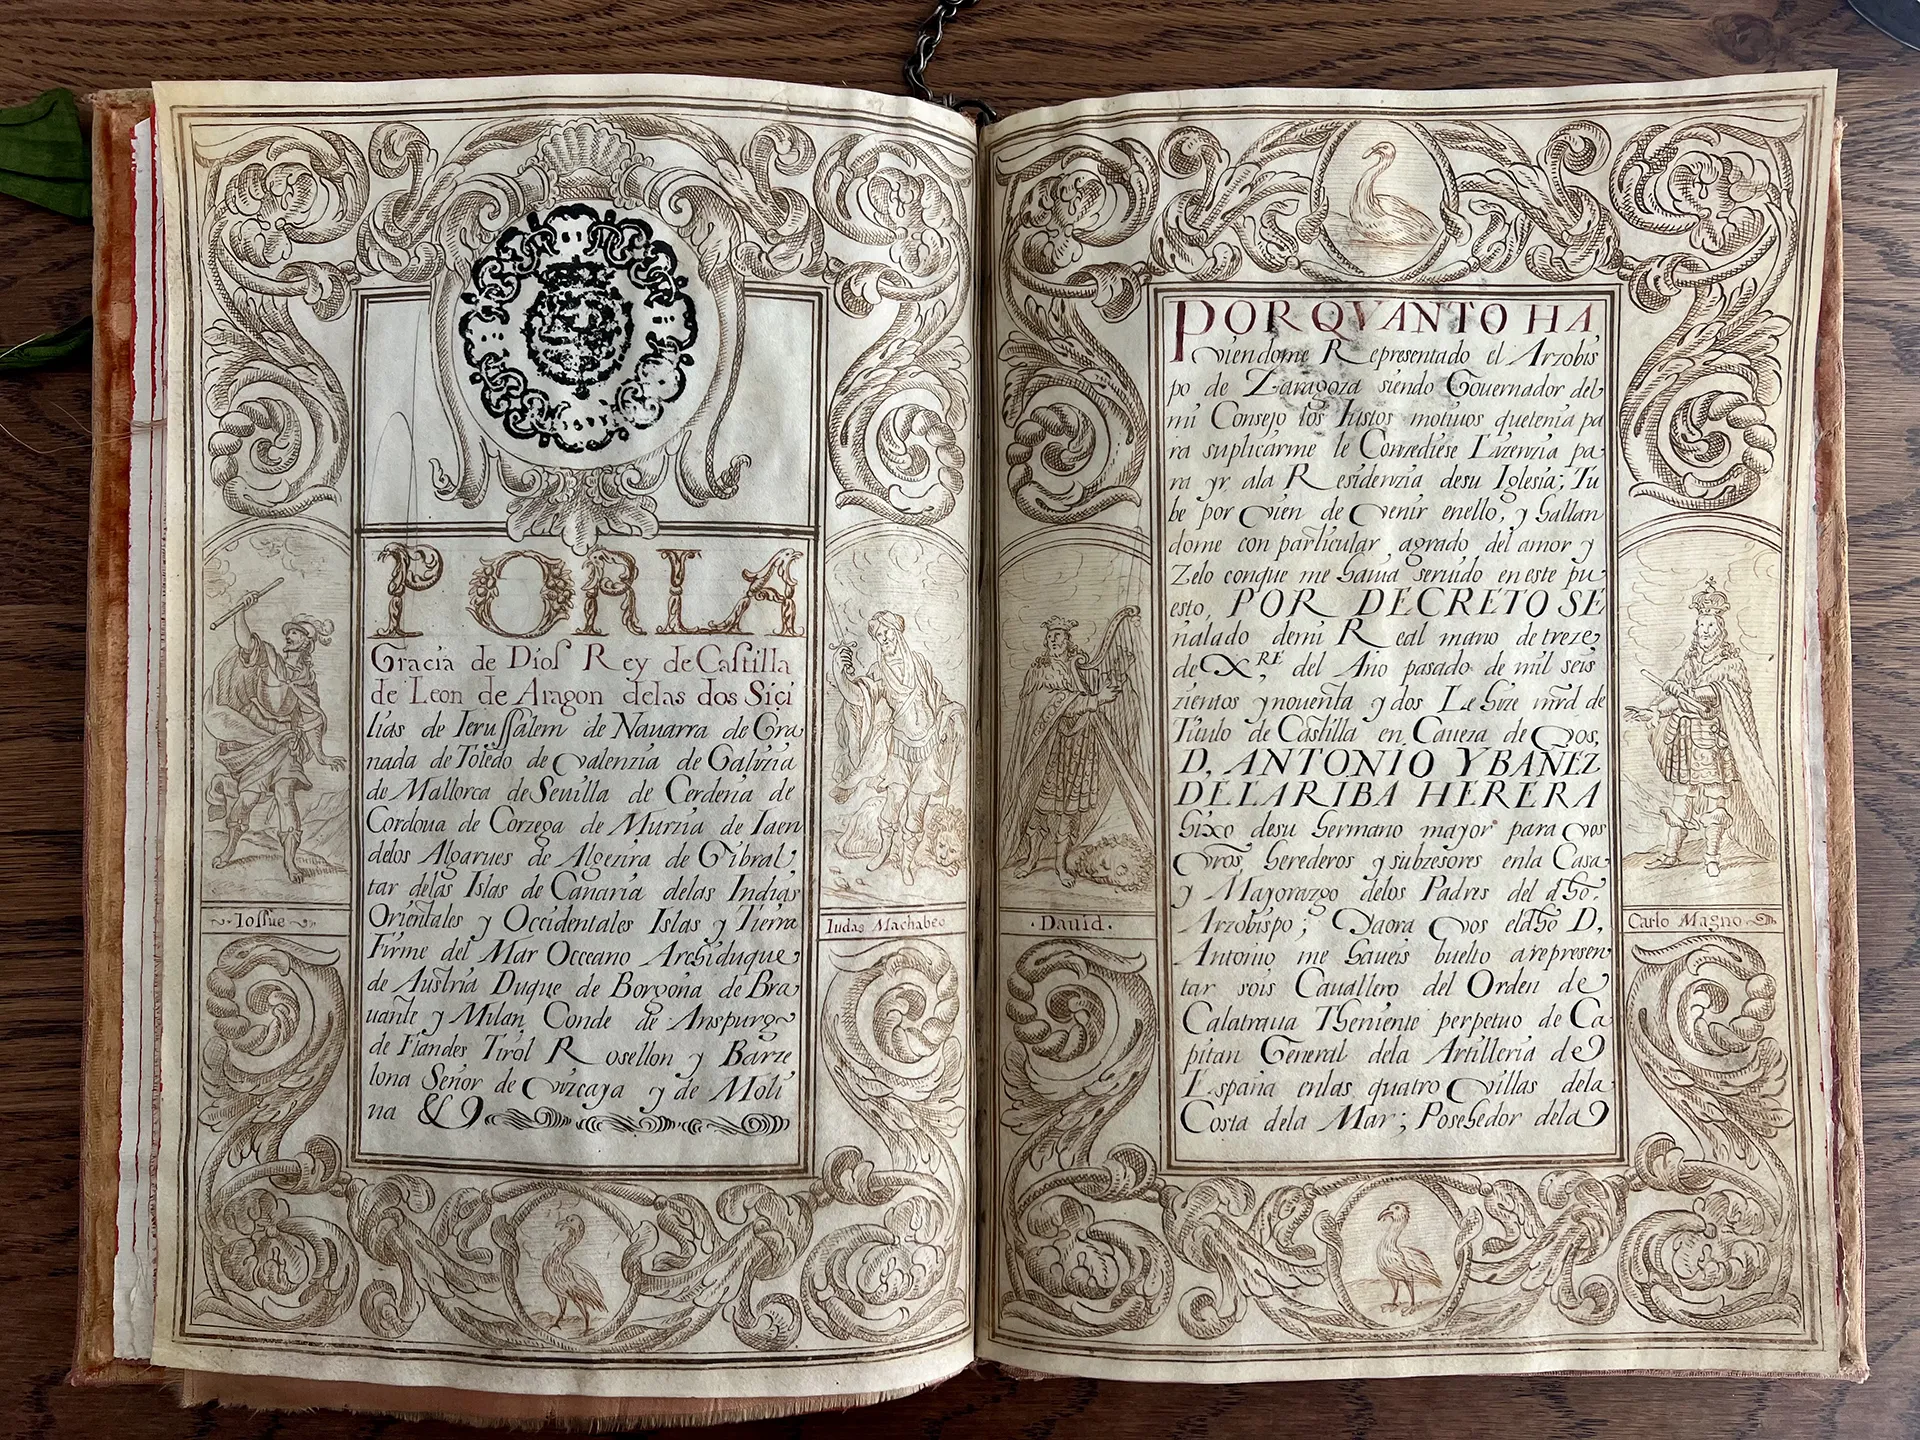 POR LA
Gracia de Dios Rey de Castilla
de Leon de Aragon delas dos Siçi
lias de Ierussalem de Nauarra de Gra
nada de Toledo de Valenzia de Galizia
de Mallorca de Seuilla de Cerdeña de
Cordoua de Corzega de Murzia de Iaen
delos Algarues de Algezira de Gibral
tar delas Islas de Canaria delas Indias
Orientales y Occidentales Islas y Tierra
Firme del Mar Occeano Archiduque
de Austria Duque de Borgoña de Bra
uante y Milan Conde de Anspurg
de Flandes Tirol Rosellon y Barze
lona Señor de Vizcaya y de Moli
na &
Iossue
Iudas Machabeo
POR QVANTO HA,
viendome Representado el Arzobis
po de Zaragoza siendo Gouernador del
mi Consejo los Iustos motiuos quetenia pa
ra suplicarme le Conzediese Lizenzia pa
ra yr ala Residenzia desu Iglesia; Tu
be por vien de venir enello, y hallan
dome con particular agrado del amor y
Zelo conque me hauia seruido eneste pu
esto, POR DECRETO SE
ñalado demi Real mano de treze
de Xre, del Año pasado de mil seis
zientos ynouenta y dos Le hize mrd de
Titulo de Castilla en Caueza de Vos,
D, ANTONIO YBAÑEZ
DELARIBA HERERA
hixo desu hermano mayor para vos
vros, herederos y subzesores enla Casa
y Mayorazgo delos Padres del dho,
Arzobispo; Yaora Vos eldho D,
Antonio me haueis buelto arepresen
tar sois Cauallero del Orden de
Calatraua Theniente perpetuo de Ca
pitan General dela Artilleria de
España enlas quatro Villas dela
Costa dela Mar; Posehedor dela
.Dauid.
Carlo Magno